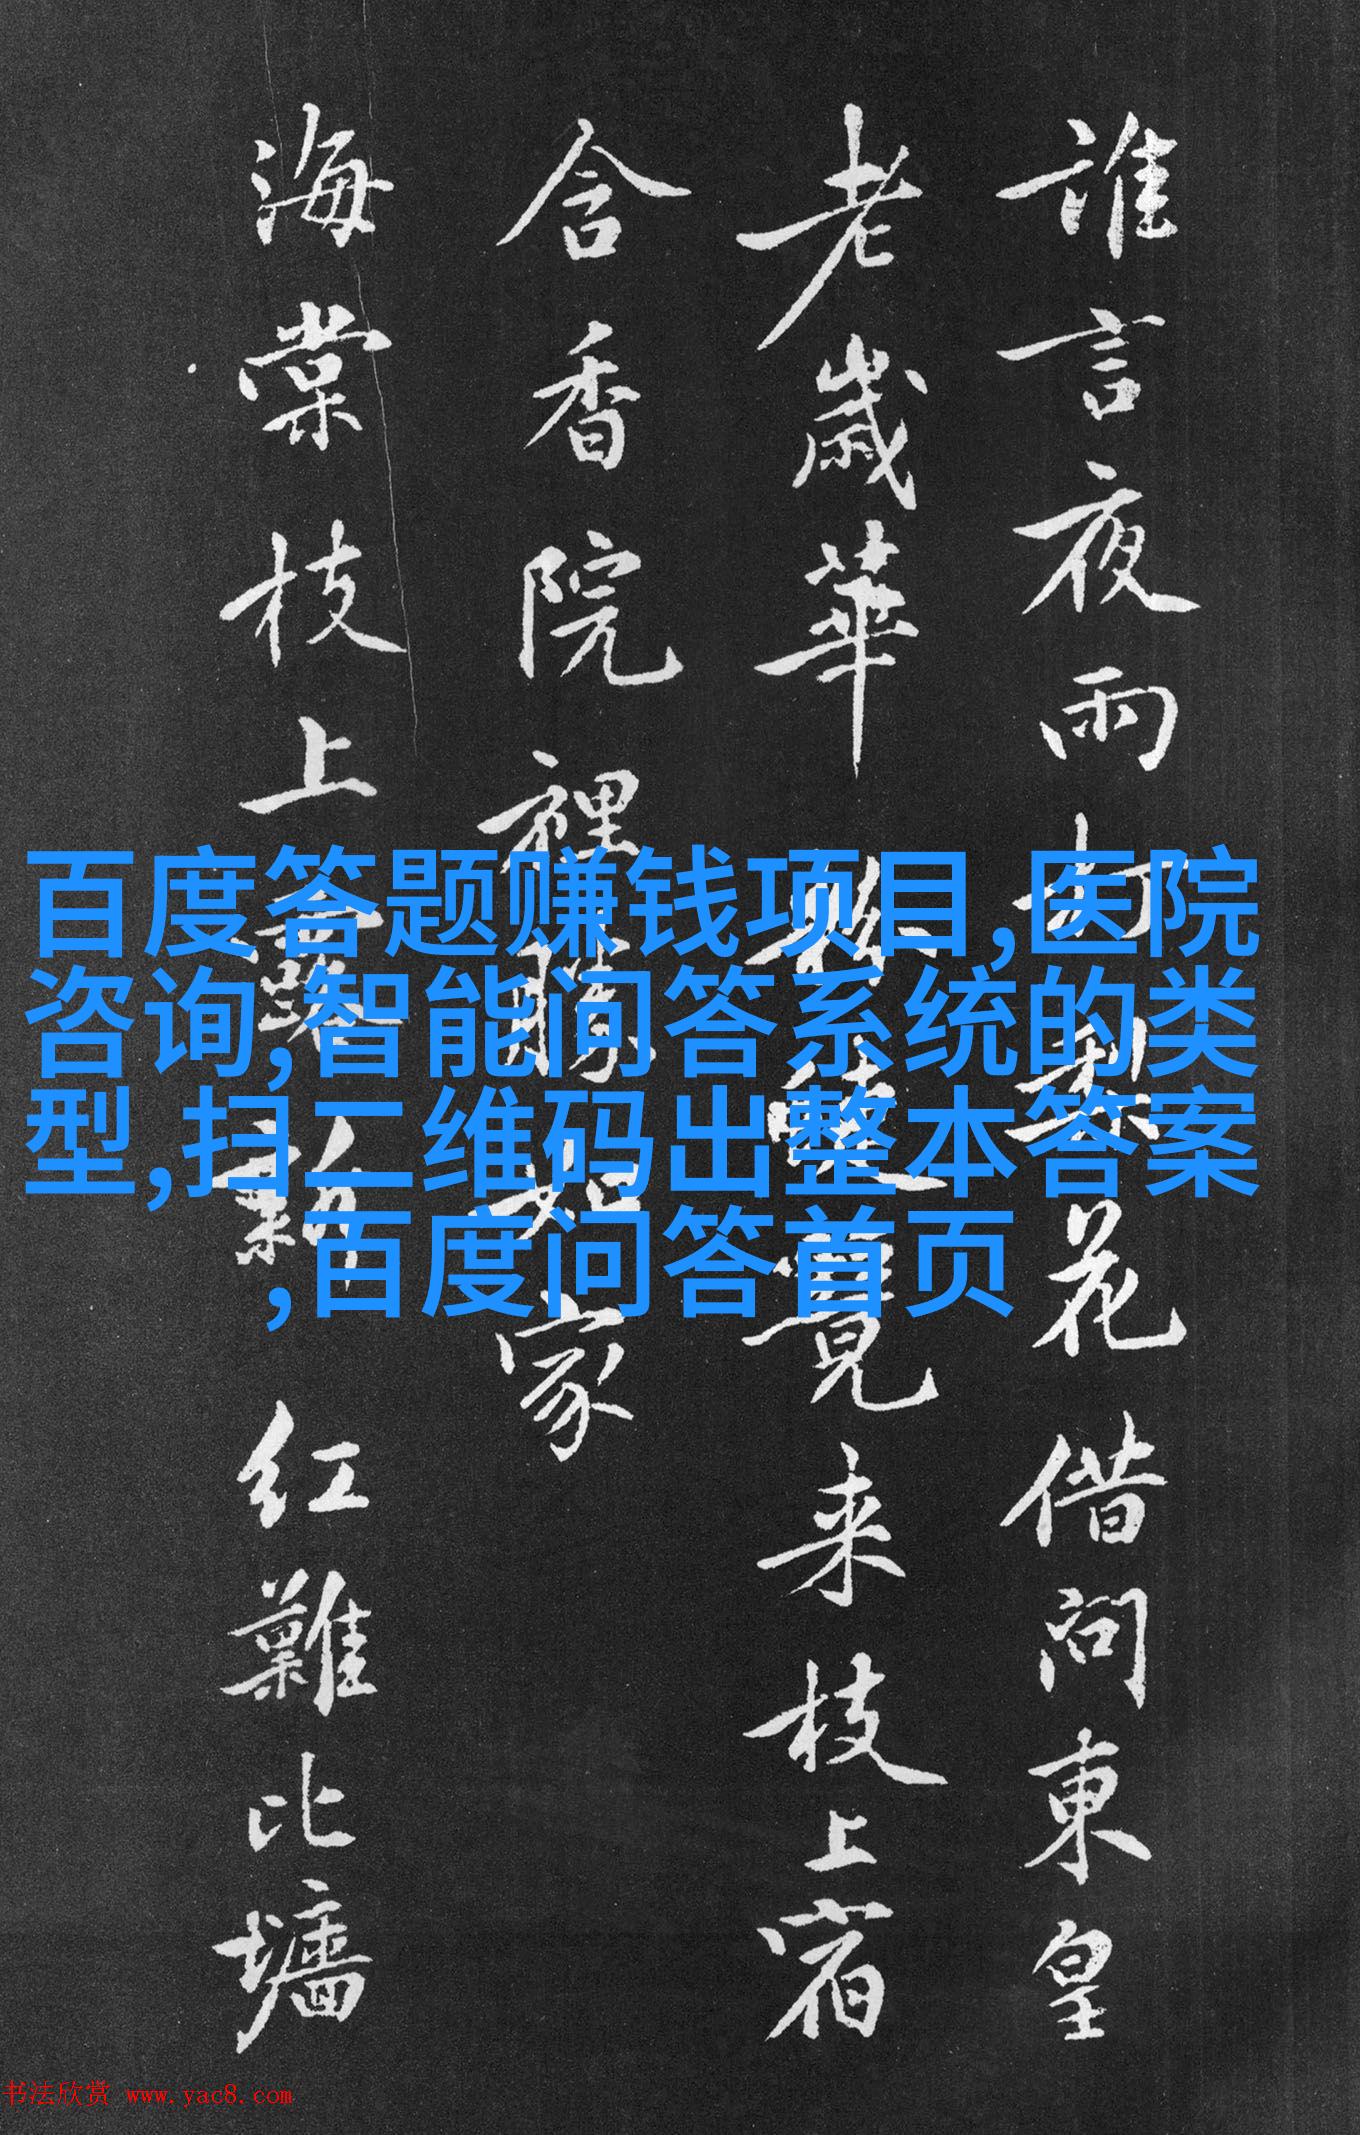 誰言夜雨打梨花借問東皇
老歲華覺来枝上宿
含香院裡勝如家
海棠枝上露新红難比墻
百度答题赚钱项目,医院
咨询,智能问答系统的类
型,扫二维码出整本答案
,百度问答首页
书法欣赏 www.yac8.com